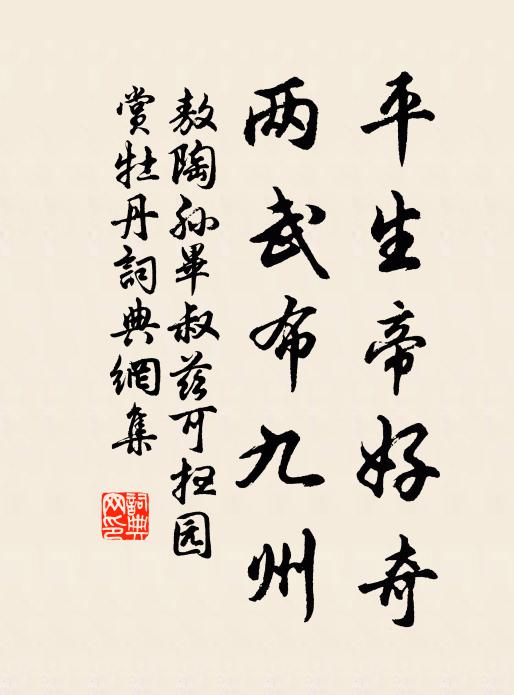 平生帝好奇
两武布九州
敖陶孙畢叔兹可抂园
賞牡丹詞典網集
詞典网印